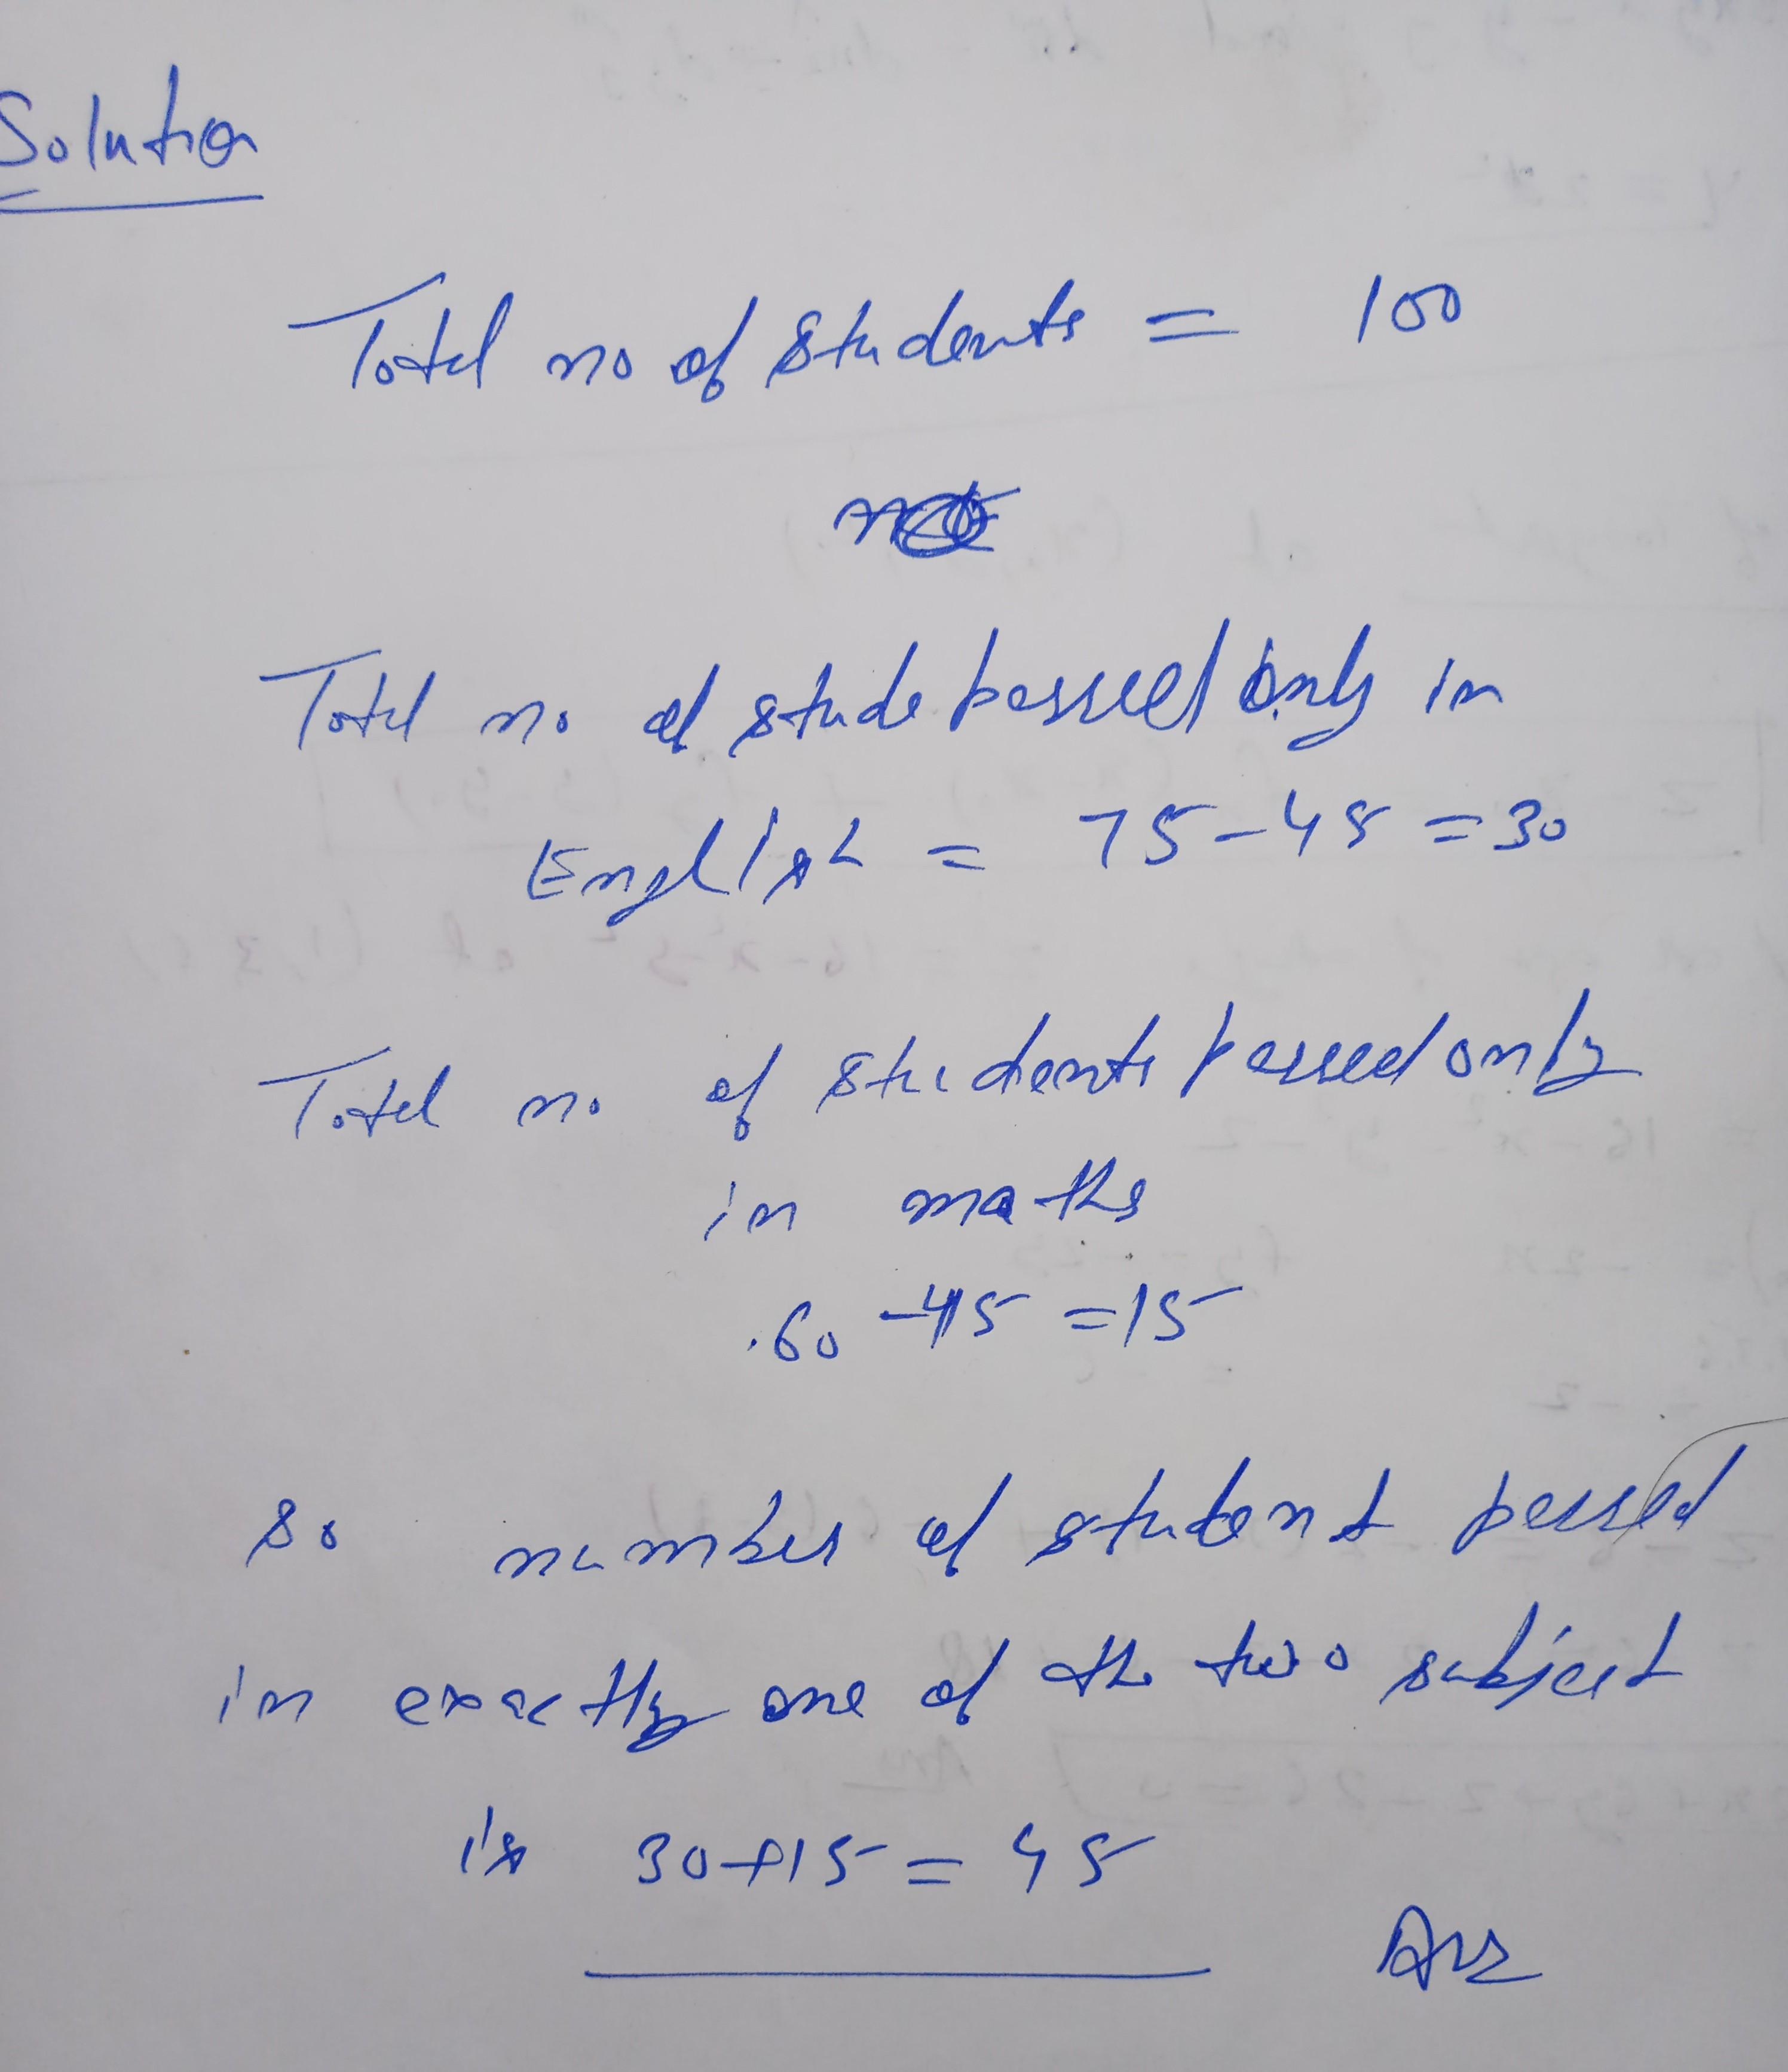 Solution
Total no of students = 100
no
Total no. of stude passed only in
English = 75-45 = 30
Total no. of students passed only
in maths
60 - 45 = 15
so number of student passed
in exactly one of the two subject
is 30+15 = 45
Ans